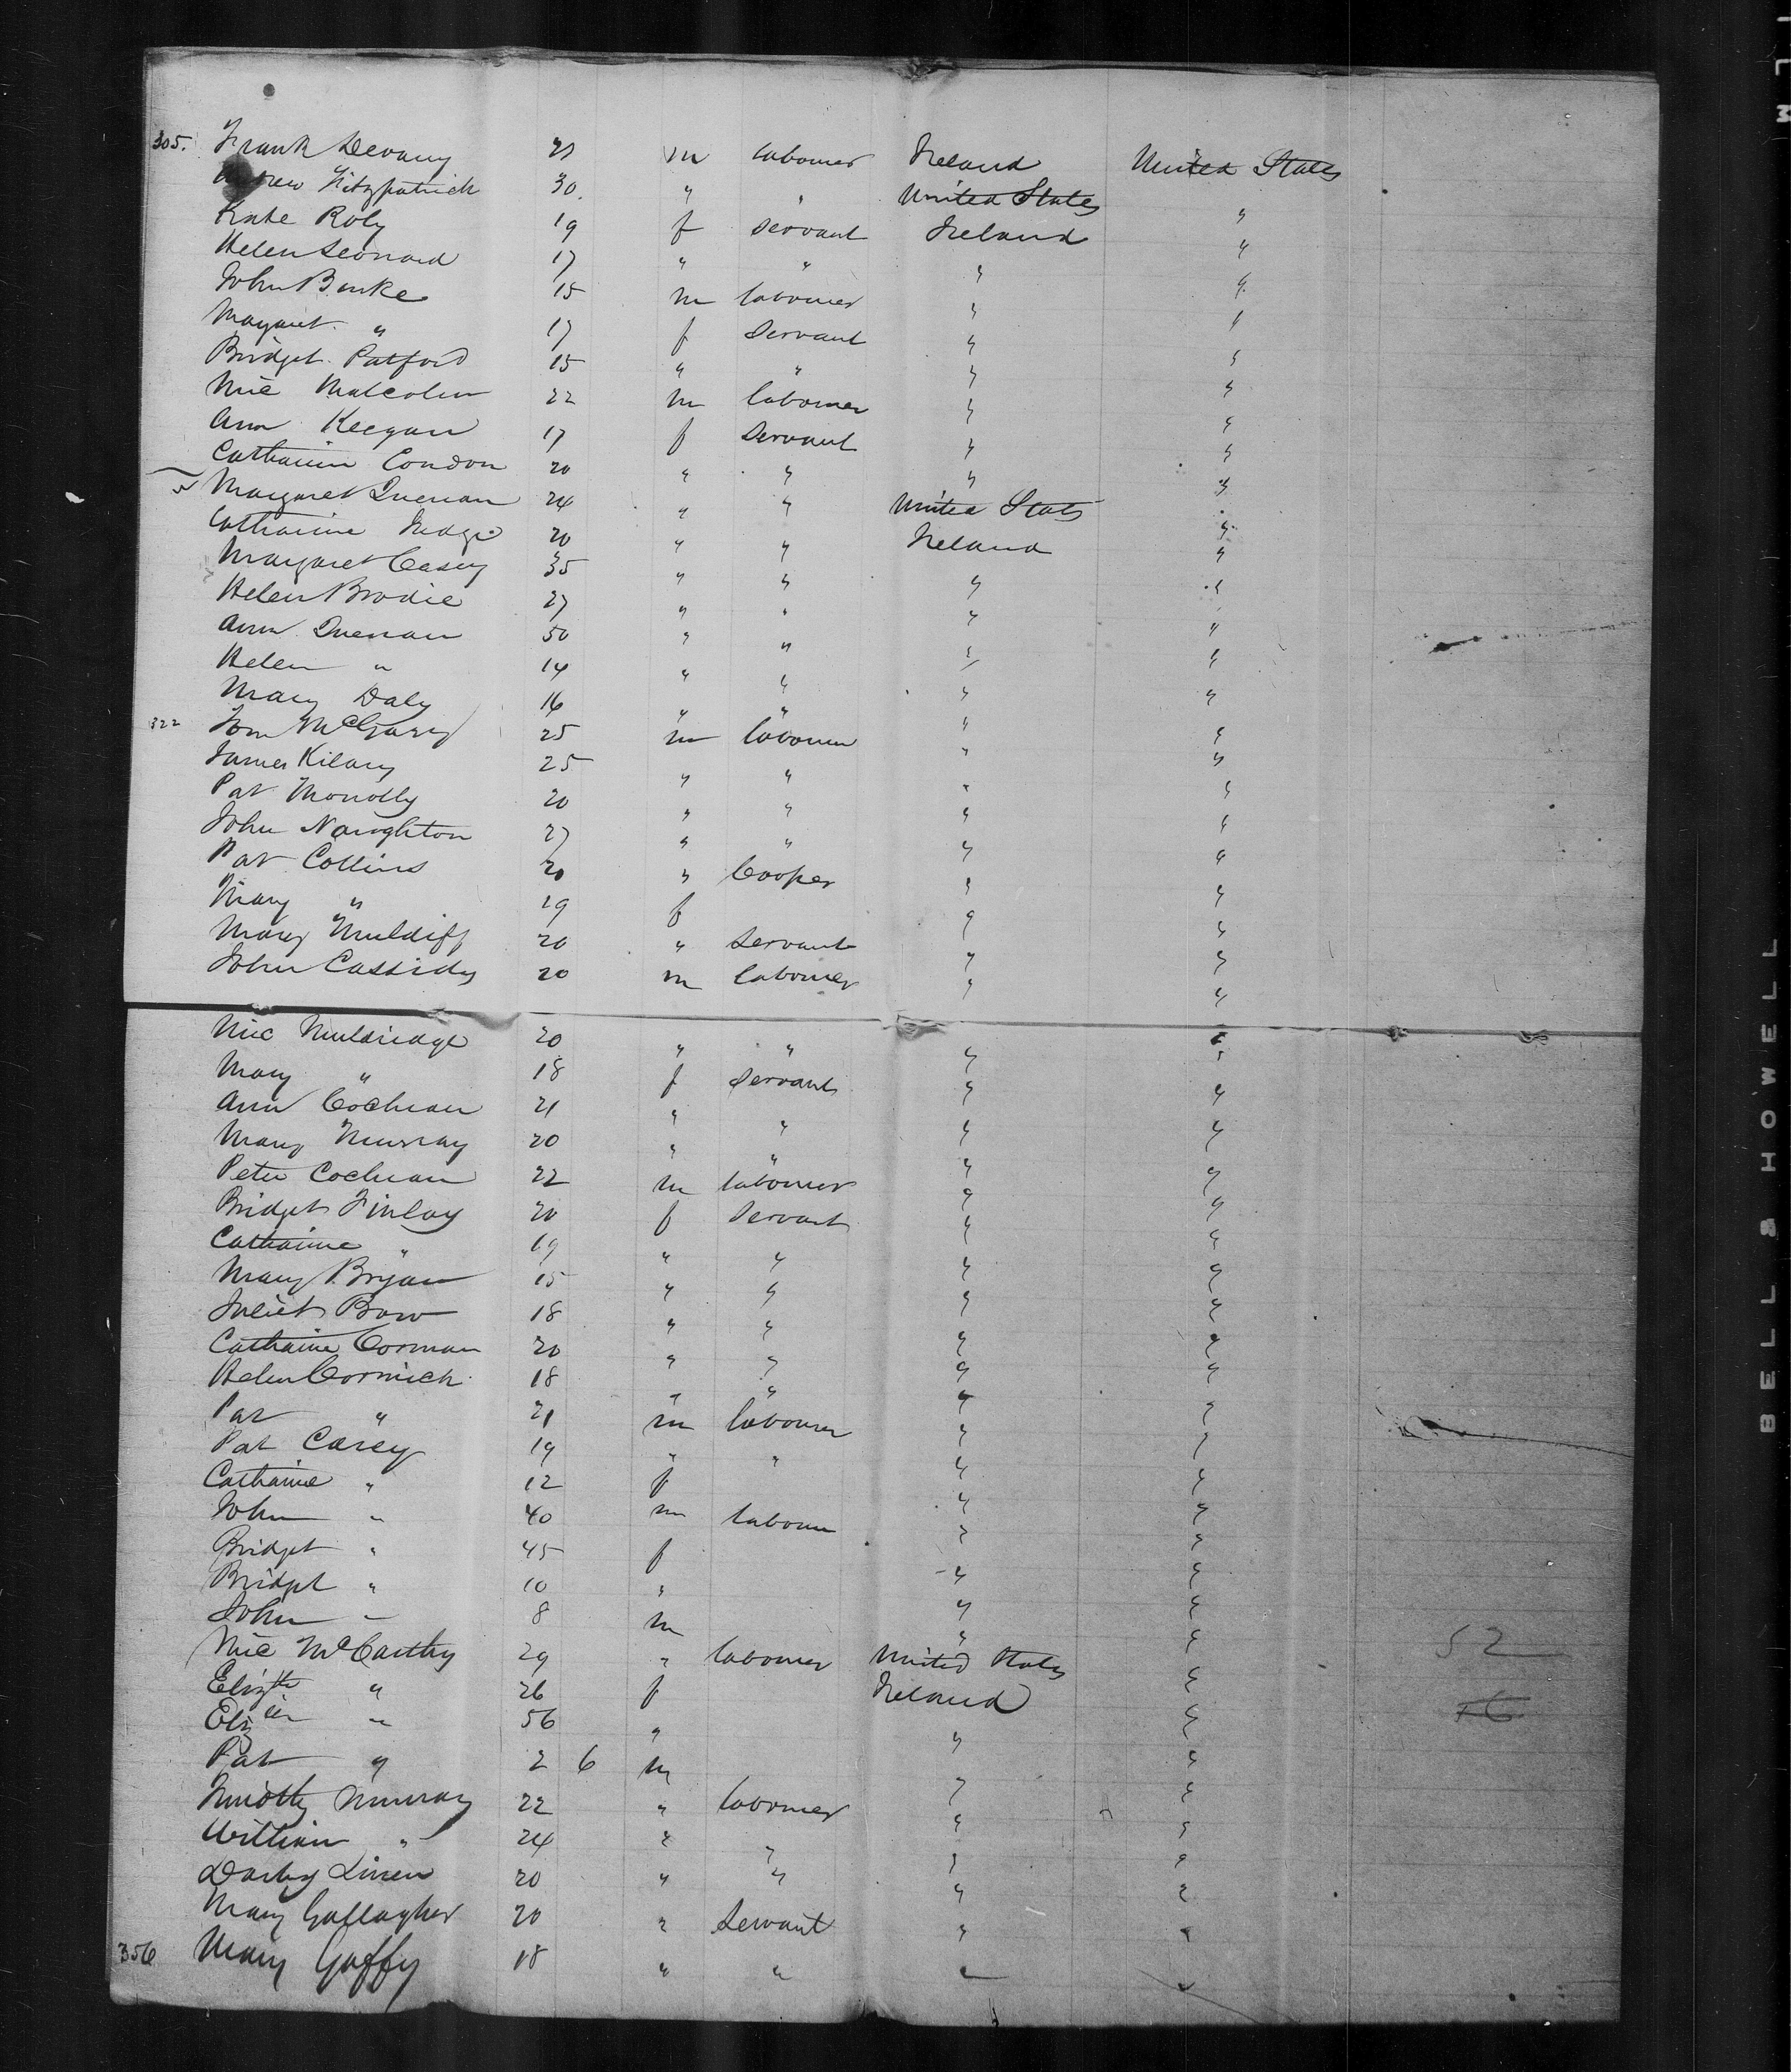 305. Frank Devany 21 m labourer Ireland United States
Andrew Fitzpatrick 30. " " United States "
Kate Roly 19 f servant Ireland "
Helen Leonard 17 " " " "
John Burke 15 m labourer " "
Margaret " 17 f Servant " "
Bridget Patford 15 " " " "
Mic Malcolm 22 m labourer " "
Ann Keegan 17 f Servant " "
Catharine Condon 20 " " " "
Margaret Quenan 24 " " United States "
Catharine 20 " " Ireland "
Margaret Casey 35 " " " "
Helen Brodie 27 " " " "
Ann Quenan 50 " " " "
Helen " 14 " " " "
Mary Daly 16 " " " "
322 Tom McGarry 25 m labourer " "
James Kilary 25 " " " "
Pat Monolly 20 " " " "
John Naughton 27 " " " "
Pat Collins 20 " Cooper " "
Mary " 19 f " "
Mary Muldiff 20 " Servant " "
John Cassidy 20 m labourer " "
Mic Muldridge 20 " " " "
Mary " 18 f servant " "
Ann Cochran 21 " " " "
Mary Murray 20 " " " "
Peter Cochran 22 m labourer " "
Bridget Finlay 20 f Servant " "
Catharine " 19 " " " "
Mary Bryan 15 " " " "
Juliet Bow 18 " " " "
Catharine Corman 20 " " " "
Helen Cormick 18 " " " "
Pat " 21 m labourer " "
Pat Carey 19 " " " "
Catharine " 12 f " "
John " 40 m labourer " "
Bridget " 45 f " "
Bridget " 10 " " "
John " 8 m " "
Mic McCarthy 29 " labourer United States " 52
Elizth " 26 f Ireland "
Elizth " 56 " " "
Pat " 2 6 m " "
Timothy Murray 22 " labourer " "
William " 24 " " " "
Darby Linen 20 " " " "
Mary Gallagher 20 " Servant " "
356 Mary Gaffy 18 " " " "
BELL & HOWELL